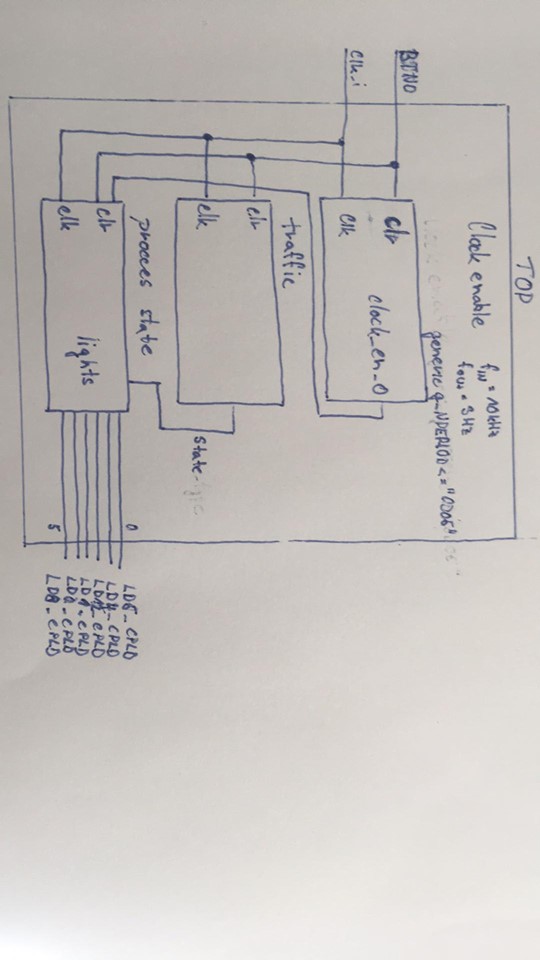 TOP
Clock enable
fIN = 10kHz
fOUT = 3Hz
generic g_NPERIOD <= "0D05"
BTN0
clk_i
clr
clock_en_0
clk
traffic
clr
clk
state
procces state
clr
lights
clk
0
5
LD5_CPLD
LD4_CPLD
_CPLD
_CPLD
_CPLD
_CPLD